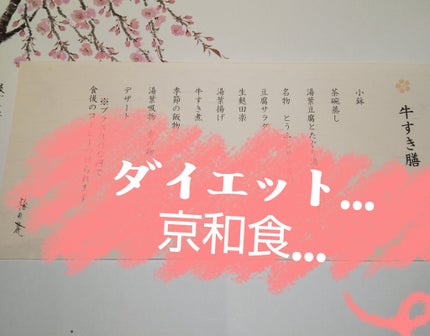 牛すき膳
小鉢
茶碗蒸し
湯葉豆腐と
名物 とうふ
豆腐サラダ
生麩田楽
湯葉揚げ
牛すき煮
季節の飯物
湯葉吸物
デザート
※プラス
食後のコー
ダイエット...
京和食...